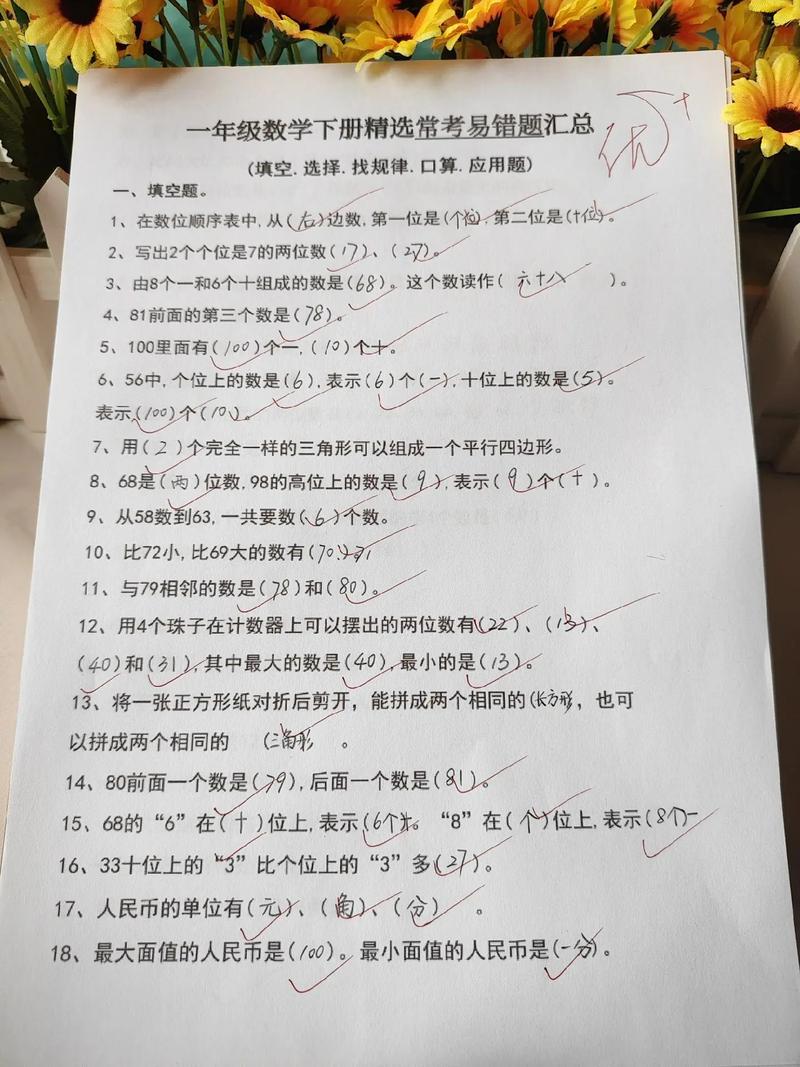 一年级数学下册精选常考易错题汇总
优+
(填空.选择.找规律.口算.应用题)
一、填空题。
1、在数位顺序表中,从(右)边数,第一位是(个位),第二位是(十位)。
2、写出2个个位是7的两位数(17)、(27)。
3、由8个一和6个十组成的数是(68)。这个数读作(六十八)。
4、81前面的第三个数是(78)。
5、100里面有(100)个一,(10)个十。
6、56中,个位上的数是(6),表示(6)个(一),十位上的数是(5)。
表示(100)个(10)。
7、用(2)个完全一样的三角形可以组成一个平行四边形。
8、68是(两)位数,98的高位上的数是(9),表示(9)个(十)。
9、从58数到63,一共要数(6)个数。
10、比72小,比69大的数有(70、71
11、与79相邻的数是(78)和(80)。
12、用4个珠子在计数器上可以摆出的两位数有(22)、(13)、
(40)和(31),其中最大的数是(40),最小的是(13)。
13、将一张正方形纸对折后剪开，能拼成两个相同的(长方形，也可
以拼成两个相同的 (三角形 。
14、80前面一个数是(79),后面一个数是(81)。
15、68的“6”在(十)位上,表示(6个十。“8”在(个)位上,表示(8个一
16、33十位上的“3”比个位上的“3”多(27)。
17、人民币的单位有(元)、(角)、(分) 。
18、最大面值的人民币是(100)。最小面值的人民币是(一分)。